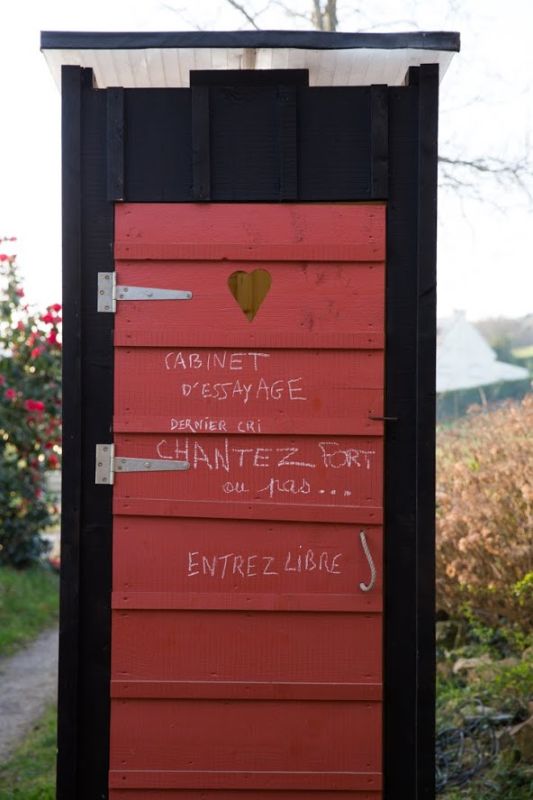 CABINET
D'ESSAYAGE
DERNIER CRI
CHANTEZ FORT
ou pas...
ENTREZ LIBRE